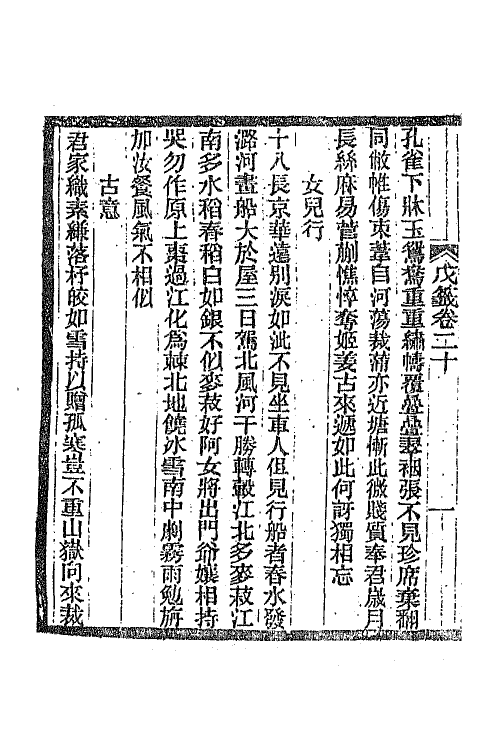 戊籤卷二十
一
孔雀下牀玉鴛鴦重重繡幬覆疊疊翠裀張不見珍席棄翻
同敝帷傷束葦自河蕩裁蒲亦近塘慚此微賤質奉君歲月
長絲麻易菅蒯憔悴奪姬姜古來遞如此何訝獨相忘
女兒行
十八長京華遠別淚如泚不見坐車人但見行船者春水發
潞河畫船大於屋三日駕北風河干勝轉轂江北多麥菽江
南多水稻舂稻白如銀不似麥菽好阿女將出門爺孃相持
哭勿作原上棗過江化爲棘北地饒冰雪南中劇霧雨勉旃
加汝餐風氣不相似
古意
君家織素縑落杼皎如雪持以贈孤寒豈不重山嶽向來裁